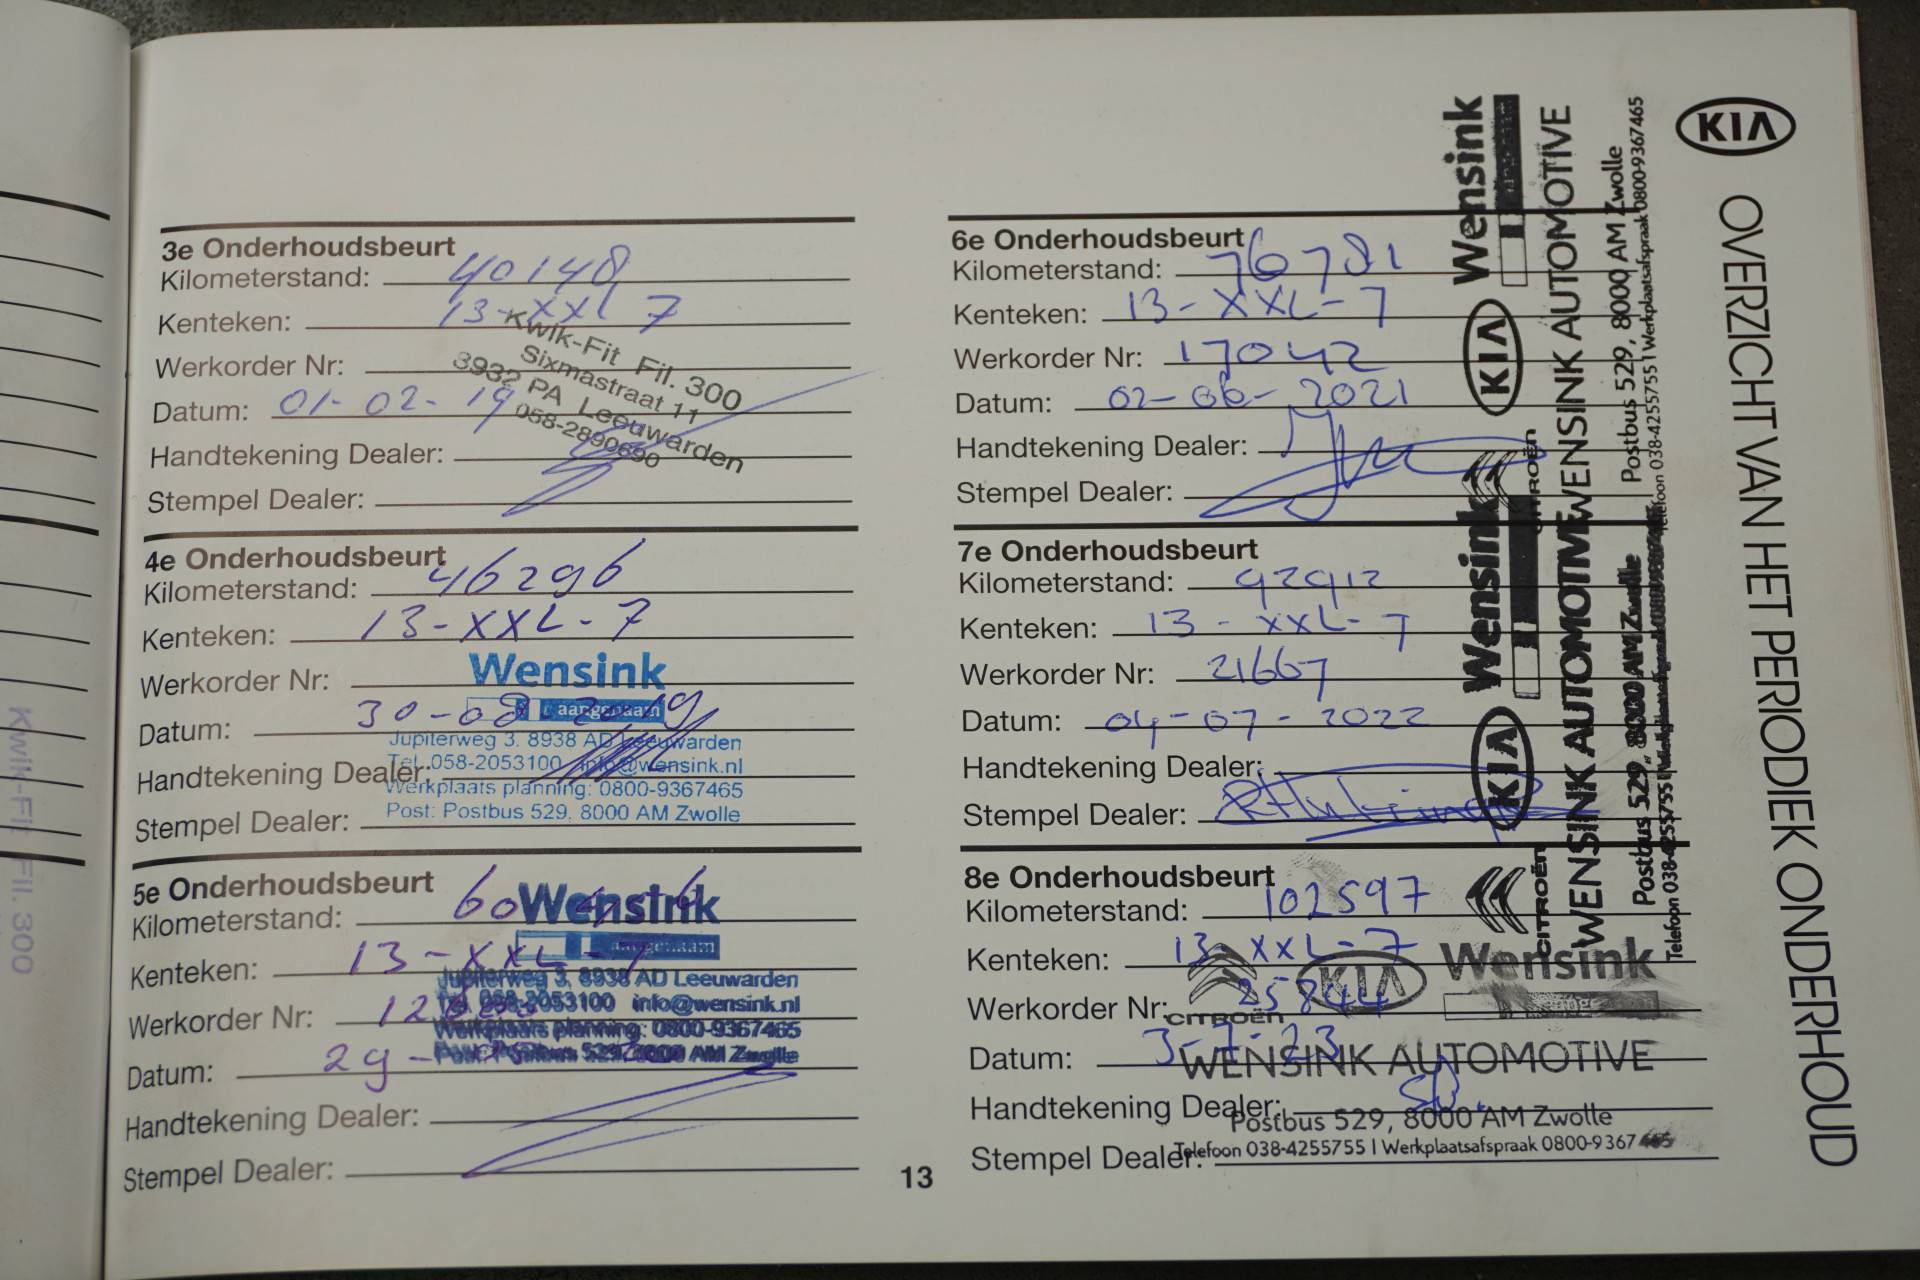 3e Onderhoudsbeurt
Kilometerstand: 40148
Kenteken: 13-XXL 7
Werkorder Nr:
Datum: 01-02-19
Handtekening Dealer:
Stempel Dealer:
Kwik-Fit Fil. 300
Sixmastraat 11
8932 PA Leeuwarden
058-2890690
4e Onderhoudsbeurt
Kilometerstand: 46296
Kenteken: 13-XXL-7
Werkorder Nr:
Datum: 30-08-2019
Handtekening Dealer:
Stempel Dealer:
Wensink
aangenaam
Jupiterweg 3, 8938 AD Leeuwarden
Tel. 058-2053100 info@wensink.nl
Werkplaats planning: 0800-9367465
Post: Postbus 529, 8000 AM Zwolle
5e Onderhoudsbeurt
Kilometerstand:
Kenteken: 13-XXL-7
Werkorder Nr:
Datum: 29-
Handtekening Dealer:
Stempel Dealer:
Wensink
aangenaam
Jupiterweg 3, 8938 AD Leeuwarden
Tel. 058-2053100 info@wensink.nl
Werkplaats planning: 0800-9367465
Post: Postbus 529, 8000 AM Zwolle
13
6e Onderhoudsbeurt
Kilometerstand: 76781
Kenteken: 13-XXL-7
Werkorder Nr: 17042
Datum: 02-06-2021
Handtekening Dealer:
Stempel Dealer:
Wensink
KIA
CITROËN
WENSINK AUTOMOTIVE
Postbus 529, 8000 AM Zwolle
Telefoon 038-4255755 | Werkplaatsafspraak 0800-9367465
7e Onderhoudsbeurt
Kilometerstand: 92912
Kenteken: 13-XXL-7
Werkorder Nr: 21667
Datum: 04-07-2022
Handtekening Dealer:
Stempel Dealer:
Wensink
KIA
CITROËN
WENSINK AUTOMOTIVE
Postbus 529, 8000 AM Zwolle
Telefoon 038-4255755 |
8e Onderhoudsbeurt
Kilometerstand: 102597
Kenteken: 13-XXL-7
Werkorder Nr: 25844
Datum: 3-7-23
Handtekening Dealer:
Stempel Dealer:
CITROËN
KIA
Wensink
WENSINK AUTOMOTIVE
Postbus 529, 8000 AM Zwolle
Telefoon 038-4255755 | Werkplaatsafspraak 0800-9367465
KIA
OVERZICHT VAN HET PERIODIEK ONDERHOUD
Kwik-Fit Fil. 300